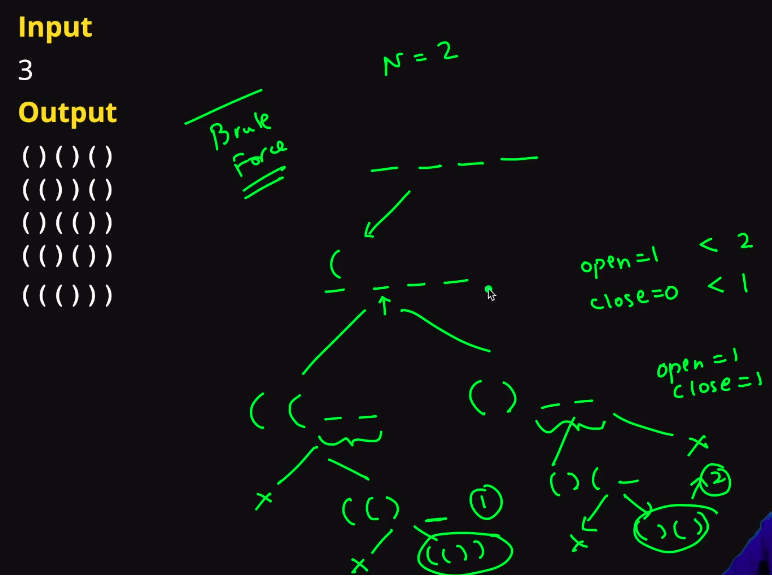 Input
3
Output
()()()
(())()
()(())
(()())
((()))
N = 2
Brute
Force
_ _ _ _
(
_ _ _ _
open=1 < 2
close=0 < 1
open=1
close=1
( ( _ _
( ) _ _
x
x
( ( ) _ 1
( ) ( _ 2
x
( ( ) )
x
( ) ( )